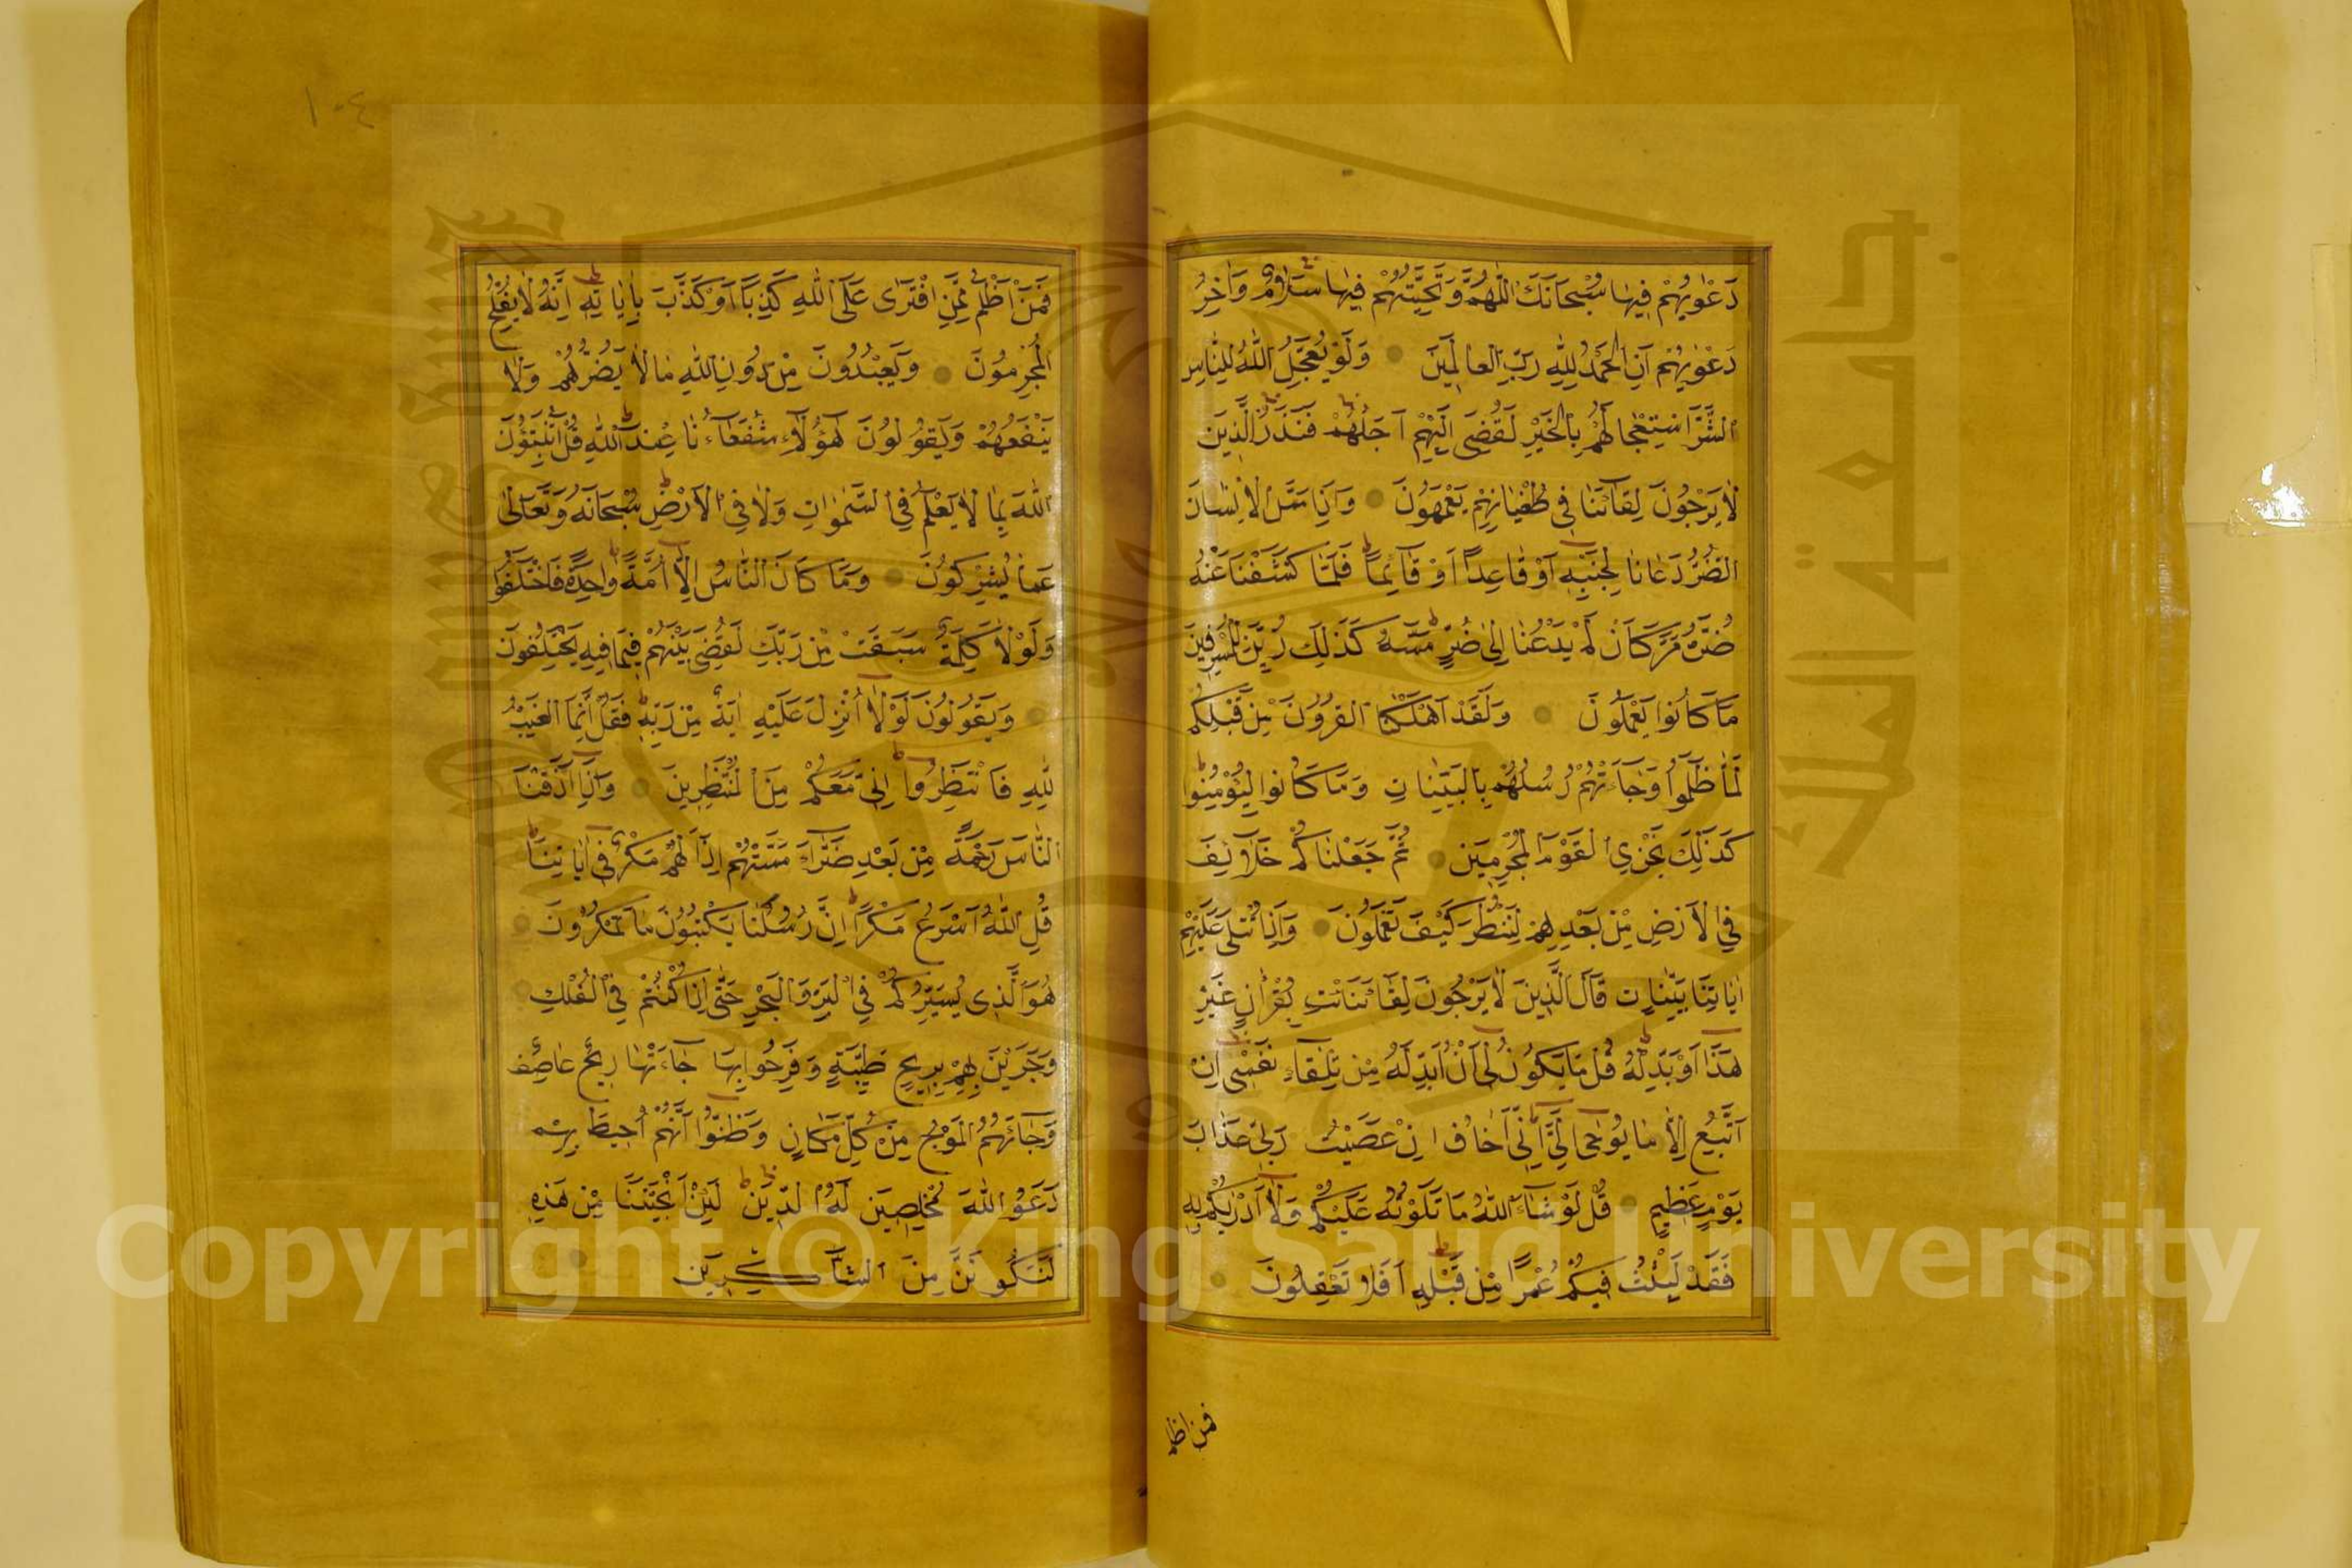 دَعْوٰيهُمْ فِيهَا سُبْحَانَكَ اللّٰهُمَّ وَتَحِيَّتُهُمْ فِيهَا سَلَامٌ وَاٰخِرُ
دَعْوٰيهُمْ اَنِ الْحَمْدُ لِلّٰهِ رَبِّ الْعَالَمِينَ وَلَوْ يُعَجِّلُ اللّٰهُ لِلنَّاسِ
الشَّرَّ اسْتِعْجَالَهُمْ بِالْخَيْرِ لَقُضِىَ اِلَيْهِمْ اَجَلُهُمْ فَنَذَرُ الَّذِينَ
لَا يَرْجُونَ لِقَاۤءَنَا فِى طُغْيَانِهِمْ يَعْمَهُونَ وَاِذَا مَسَّ الْاِنْسَانَ
الضُّرُّ دَعَانَا لِجَنْبِهِ اَوْ قَاعِدًا اَوْ قَاۤئِمًا فَلَمَّا كَشَفْنَا عَنْهُ
ضُرَّهُ مَرَّ كَاَنْ لَمْ يَدْعُنَا اِلٰى ضُرٍّ مَسَّهُ كَذٰلِكَ زُيِّنَ لِلْمُسْرِفِينَ
مَا كَانُوا يَعْمَلُونَ وَلَقَدْ اَهْلَكْنَا الْقُرُونَ مِنْ قَبْلِكُمْ
لَمَّا ظَلَمُوا وَجَاۤءَتْهُمْ رُسُلُهُمْ بِالْبَيِّنَاتِ وَمَا كَانُوا لِيُؤْمِنُوا
كَذٰلِكَ نَجْزِى الْقَوْمَ الْمُجْرِمِينَ ثُمَّ جَعَلْنَاكُمْ خَلَاۤئِفَ
فِى الْاَرْضِ مِنْ بَعْدِهِمْ لِنَنْظُرَ كَيْفَ تَعْمَلُونَ وَاِذَا تُتْلٰى عَلَيْهِمْ
اٰيَاتُنَا بَيِّنَاتٍ قَالَ الَّذِينَ لَا يَرْجُونَ لِقَاۤءَنَا ائْتِ بِقُرْاٰنٍ غَيْرِ
هٰذَا اَوْ بَدِّلْهُ قُلْ مَا يَكُونُ لِى اَنْ اُبَدِّلَهُ مِنْ تِلْقَاۤءِ نَفْسِى اِنْ
اَتَّبِعُ اِلَّا مَا يُوحٰى اِلَىَّ اِنِّى اَخَافُ اِنْ عَصَيْتُ رَبِّى عَذَابَ
يَوْمٍ عَظِيمٍ قُلْ لَوْ شَاۤءَ اللّٰهُ مَا تَلَوْتُهُ عَلَيْكُمْ وَلَا اَدْرٰيكُمْ بِهِ
فَقَدْ لَبِثْتُ فِيكُمْ عُمُرًا مِنْ قَبْلِهِ اَفَلَا تَعْقِلُونَ
فمن اظلم
١٠٤
فَمَنْ اَظْلَمُ مِمَّنِ افْتَرٰى عَلَى اللّٰهِ كَذِبًا اَوْ كَذَّبَ بِاٰيَاتِهِ اِنَّهُ لَا يُفْلِحُ
الْمُجْرِمُونَ وَيَعْبُدُونَ مِنْ دُونِ اللّٰهِ مَا لَا يَضُرُّهُمْ وَلَا
يَنْفَعُهُمْ وَيَقُولُونَ هٰۤؤُلَاۤءِ شُفَعَاۤؤُنَا عِنْدَ اللّٰهِ قُلْ اَتُنَبِّؤُنَ
اللّٰهَ بِمَا لَا يَعْلَمُ فِى السَّمٰوَاتِ وَلَا فِى الْاَرْضِ سُبْحَانَهُ وَتَعَالٰى
عَمَّا يُشْرِكُونَ وَمَا كَانَ النَّاسُ اِلَّا اُمَّةً وَاحِدَةً فَاخْتَلَفُوا
وَلَوْلَا كَلِمَةٌ سَبَقَتْ مِنْ رَبِّكَ لَقُضِىَ بَيْنَهُمْ فِيمَا فِيهِ يَخْتَلِفُونَ
وَيَقُولُونَ لَوْلَا اُنْزِلَ عَلَيْهِ اٰيَةٌ مِنْ رَبِّهِ فَقُلْ اِنَّمَا الْغَيْبُ
لِلّٰهِ فَانْتَظِرُوا اِنِّى مَعَكُمْ مِنَ الْمُنْتَظِرِينَ وَاِذَا اَذَقْنَا
النَّاسَ رَحْمَةً مِنْ بَعْدِ ضَرَّاۤءَ مَسَّتْهُمْ اِذَا لَهُمْ مَكْرٌ فِى اٰيَاتِنَا
قُلِ اللّٰهُ اَسْرَعُ مَكْرًا اِنَّ رُسُلَنَا يَكْتُبُونَ مَا تَمْكُرُونَ
هُوَ الَّذِى يُسَيِّرُكُمْ فِى الْبَرِّ وَالْبَحْرِ حَتّٰى اِذَا كُنْتُمْ فِى الْفُلْكِ
وَجَرَيْنَ بِهِمْ بِرِيحٍ طَيِّبَةٍ وَفَرِحُوا بِهَا جَاۤءَتْهَا رِيحٌ عَاصِفٌ
وَجَاۤءَهُمُ الْمَوْجُ مِنْ كُلِّ مَكَانٍ وَظَنُّوا اَنَّهُمْ اُحِيطَ بِهِمْ
دَعَوُا اللّٰهَ مُخْلِصِينَ لَهُ الدِّينَ لَئِنْ اَنْجَيْتَنَا مِنْ هٰذِهِ
لَنَكُونَنَّ مِنَ الشَّاكِرِينَ
جامعة الملك سعود
1957
Copyright © King Saud University